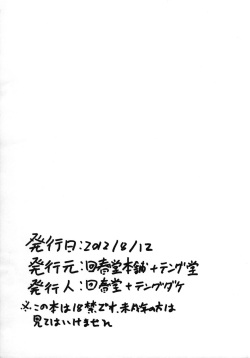 発行日:2012/8/12
発行元:回春堂本舗+テング堂
発行人:回春堂+テングダケ
※この本は18禁です。未成年の方は
見てはいけません